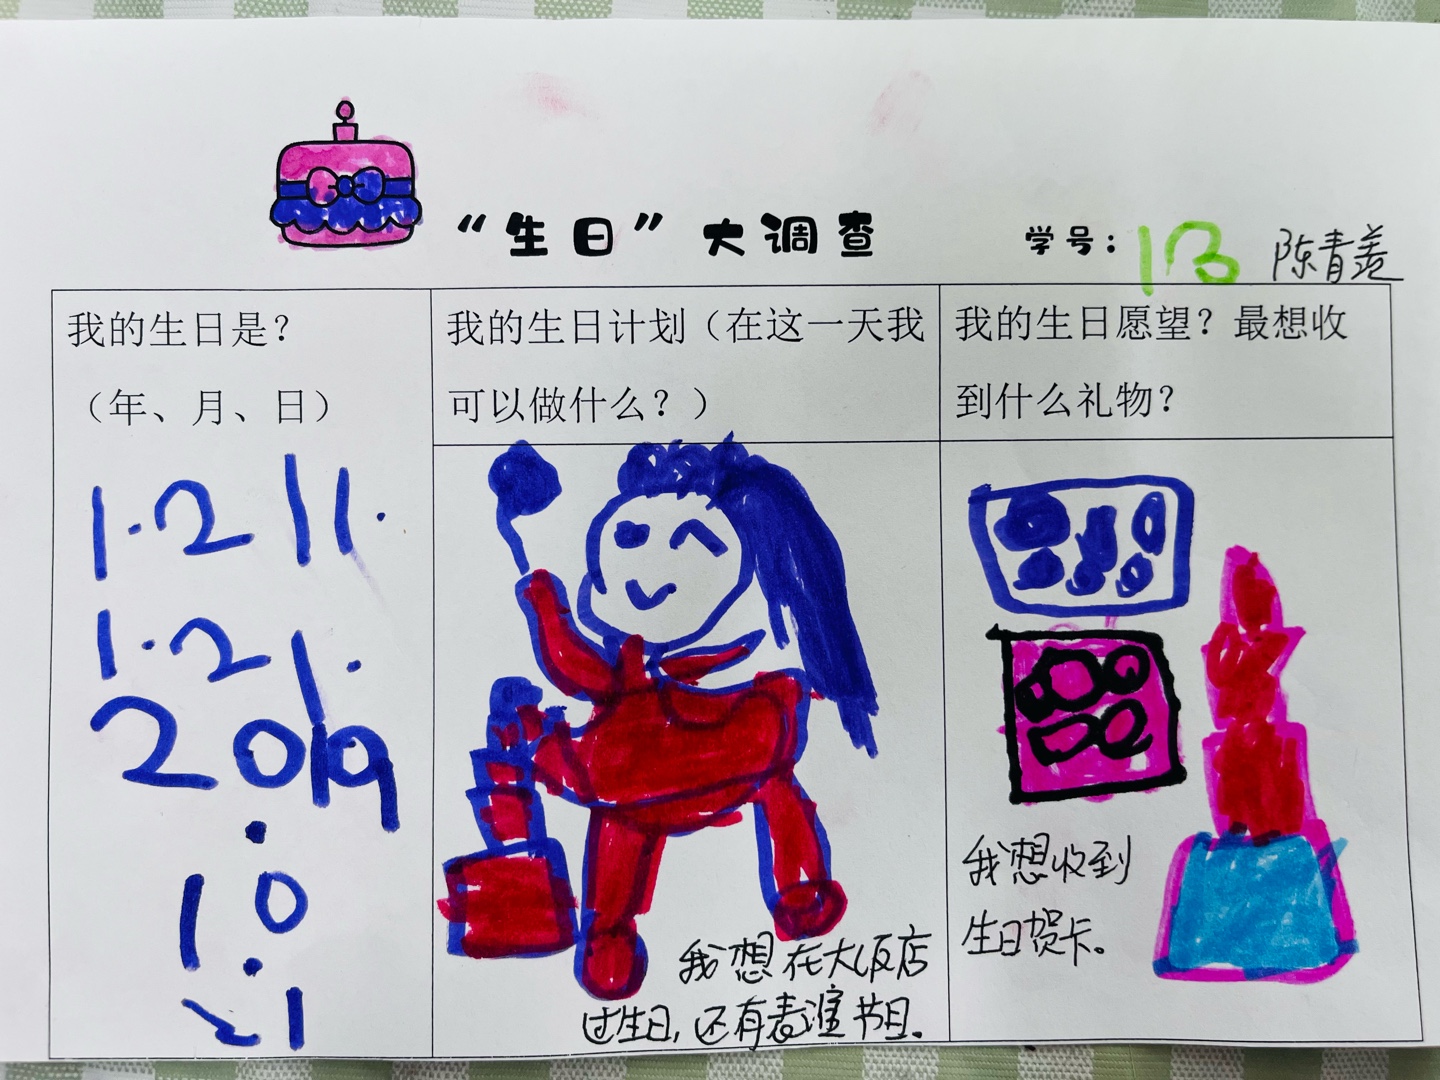 “生日”大调查
学号：13 陈青羡
我的生日是？
（年、月、日）
1.2 11.
1.21.
2019
.
10
.
21
我的生日计划（在这一天我
可以做什么？）
我想在大饭店
过生日，还有表演节目。
我的生日愿望？最想收
到什么礼物？
我想收到
生日贺卡。